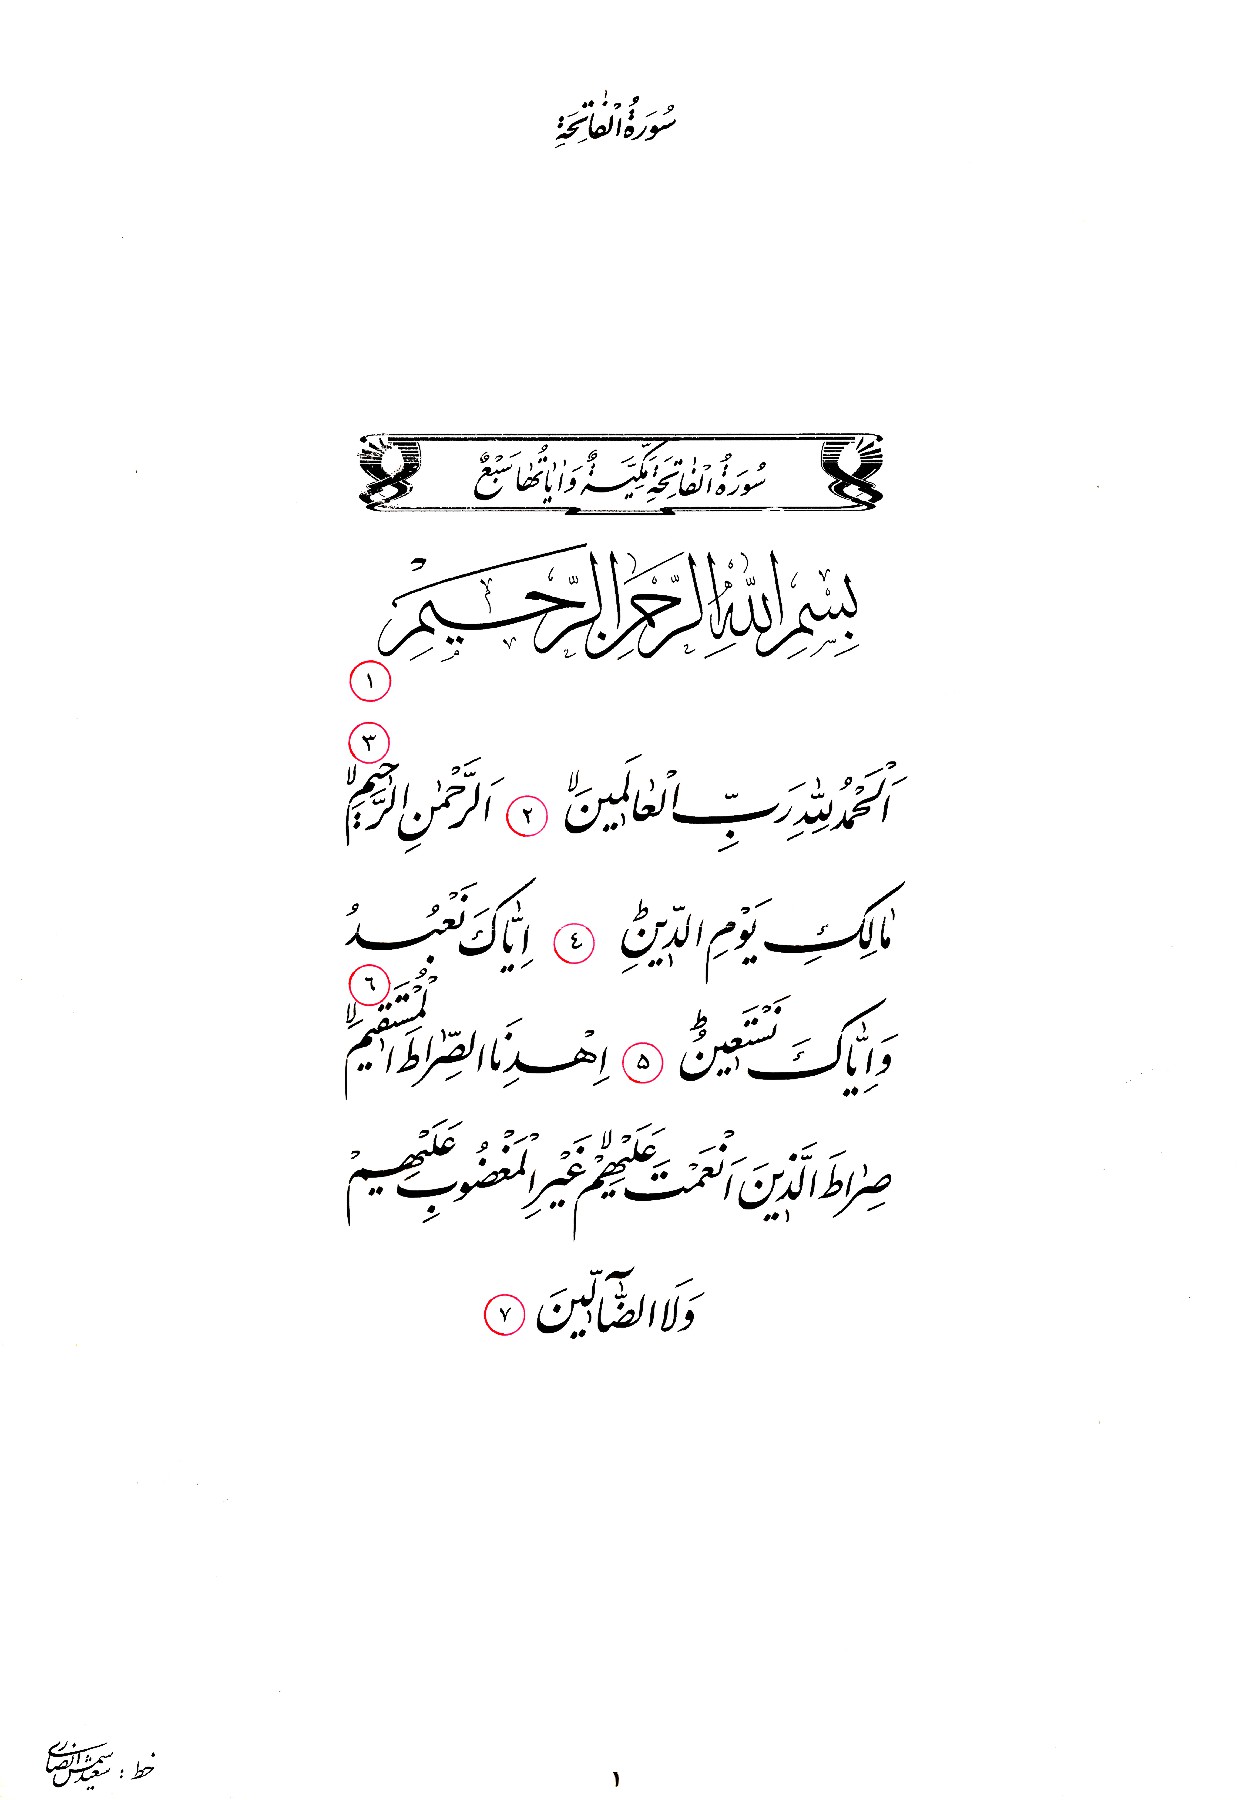 سُورَةُ الْفَاتِحَةِ
سُورَةُ الْفَاتِحَةِ مَكِّيَّةٌ وَاٰيَاتُهَا سَبْعٌ
بِسْمِ اللّٰهِ الرَّحْمٰنِ الرَّحِيمِ
١
اَلْحَمْدُ لِلّٰهِ رَبِّ الْعَالَمِينَۙ ٢ اَلرَّحْمٰنِ الرَّحِيمِۙ ٣
مَالِكِ يَوْمِ الدِّينِۜ ٤ اِيَّاكَ نَعْبُدُ
وَاِيَّاكَ نَسْتَعِينُۜ ٥ اِهْدِنَا الصِّرَاطَ الْمُسْتَقِيمَۙ ٦
صِرَاطَ الَّذِينَ اَنْعَمْتَ عَلَيْهِمْۙ غَيْرِ الْمَغْضُوبِ عَلَيْهِمْ
وَلَا الضَّٓالِّينَ ٧
خط : سعید شمس انصاری
١